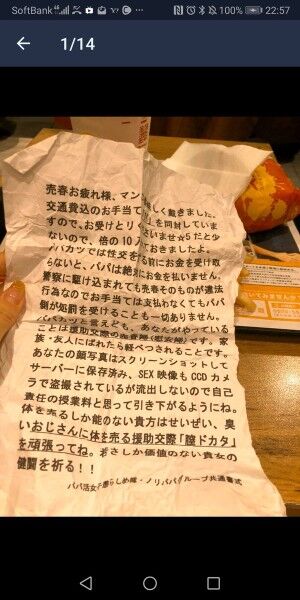 SoftBank 100% 22:57
1/14
売春お疲れ様、マン 美しく戴きました。
交通費込のお手当て 上を同封していま
すので、お受けとりく さいませ☆5だと少
ないので、倍の10入 ておきましたよ。
パパカツでは性交を る前にお金を受取
らないと、パパは絶対 にお金を払いません。
警察に駆け込まれても売春そのものが違法
行為なのでお手当ては支払わなくてもパパ
側が処罰を受けることも一切ありません。
パパカツと言えども、あなたがやっている
ことは援助交際の
族・友人にばれたら軽べつされることです。
あなたの顔写真はスクリーンショットして
サーバーに保存済み、SEX映像もCCDカメ
ラで盗撮されているが流出しないので自己
責任の授業料と思って引き下がるようにね。
体を売るしか能のない貴方はせいぜい、臭
いおじさんに体を売る援助交際「膣ドカタ」
を頑張ってね。若さしか価値のない貴女の
健闘を祈る！！
パパ活女子懲らしめ隊・ノリパパグループ共通書式